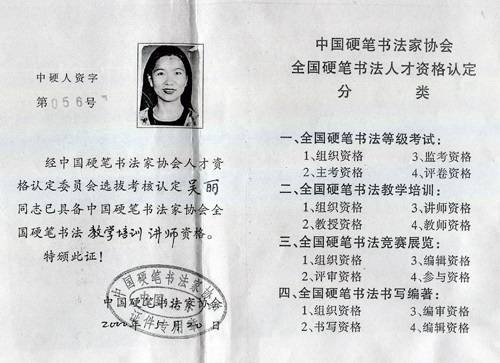 中硬人资字
第056号
经中国硬笔书法家协会人才资
格认定委员会选拔考核认定吴丽
同志已具备中国硬笔书法家协会全
国硬笔书法教学培训讲师资格。
特颁此证！
中国硬笔书法家协会
证件专用章
中国硬笔书法家协会
月20日
中国硬笔书法家协会
全国硬笔书法人才资格认定
分 类
一、全国硬笔书法等级考试：
1、组织资格 3、监考资格
2、主考资格 4、评卷资格
二、全国硬笔书法教学培训：
1、组织资格 3、讲师资格
2、教授资格 4、教师资格
三、全国硬笔书法竞赛展览：
1、组织资格 3、编辑资格
2、评审资格 4、参与资格
四、全国硬笔书法书写编著：
1、组织资格 3、编审资格
2、书写资格 4、编辑资格